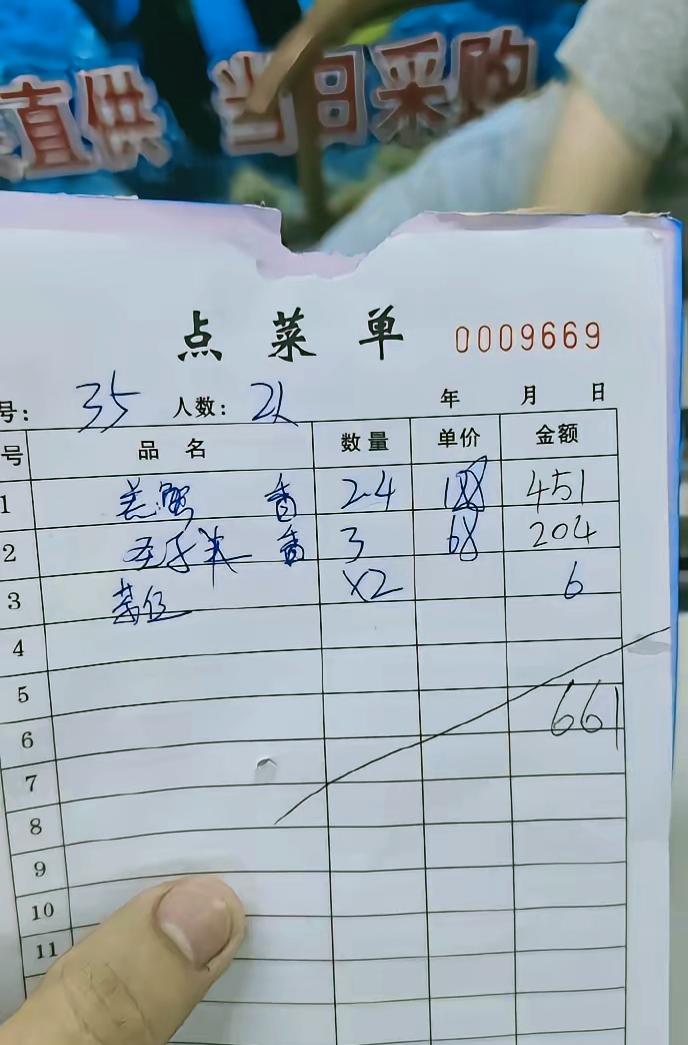 直供 当日采购
点菜单 0009669
号: 35 人数: 2人 年 月 日
号 品名 数量 单价 金额
1 羔蟹 香 24 188 451
2 香 3 68 204
3 茶位 X2 6
4
5
661
6
7
8
9
10
11